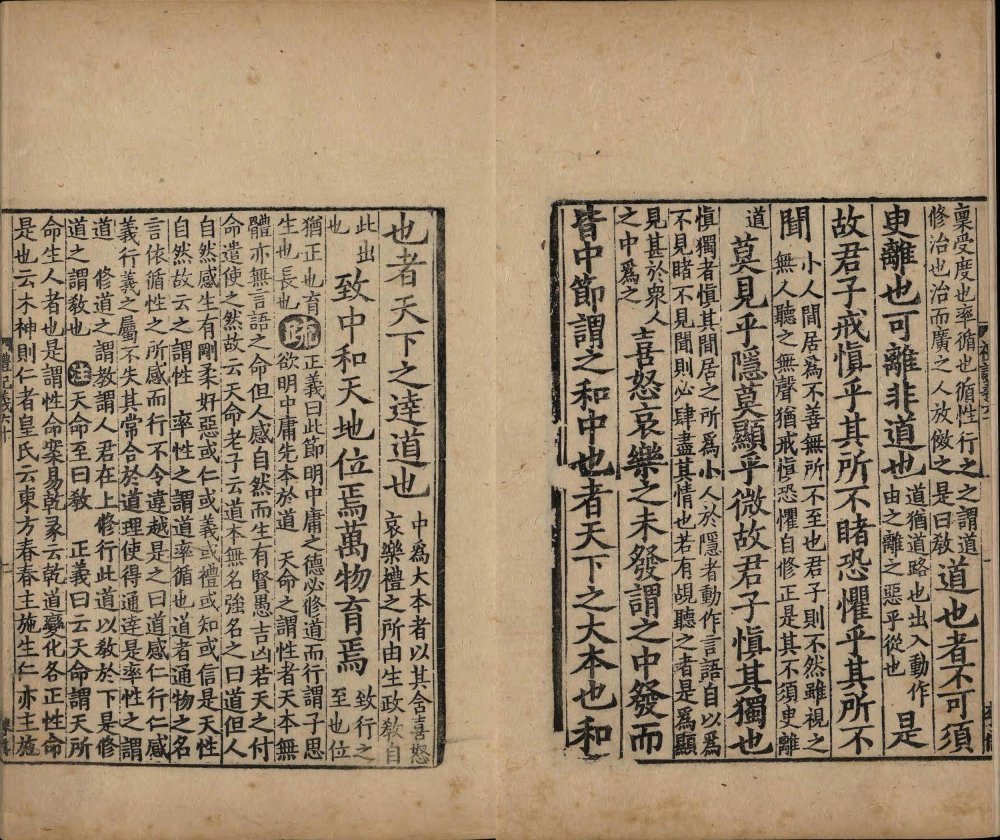 稟受度也率循也循性行之之謂道
修治也治而廣之人放傚之是曰教
道也者不可須
臾離也可離非道也
道猶道路也出入動作
由之離之惡乎從也
是
故君子戒慎乎其所不睹恐懼乎其所不
聞
小人閒居爲不善無所不至也君子則不然雖視之
無人聽之無聲猶戒慎恐懼自修正是其不須臾離
道
莫見乎隱莫顯乎微故君子慎其獨也
慎獨者慎其閒居之所爲小人於隱者動作言語自以爲
不見睹不見聞則必肆盡其情也若有覘聽之者是爲顯
見甚於衆人
之中爲之
喜怒哀樂之未發謂之中發而
皆中節謂之和中也者天下之大本也和
也者天下之達道也
中爲大本者以其含喜怒
哀樂禮之所由生政教自
此出
也
致中和天地位焉萬物育焉
致行之
至也位
猶正也育
生也長也
疏
正義曰此節明中庸之德必修道而行謂子思
欲明中庸先本於道 天命之謂性者天本無
體亦無言語之命但人感自然而生有賢愚吉凶若天之付
命遣使之然故云天命老子云道本無名強名之曰道但人
自然感生有剛柔好惡或仁或義或禮或知或信是天性
自然故云之謂性 率性之謂道率循也道者通物之名
言依循性之所感而行不令違越是之曰道感仁行仁感
義行義之屬不失其常合於道理使得通達是率性之謂
道 修道之謂教謂人君在上修行此道以教於下是修
道之謂教也 注天命至曰教 正義曰云天命謂天所
命生人者也是謂性命案易乾彖云乾道變化各正性命
是也云木神則仁者皇氏云東方春春主施生仁亦主施
禮記義六十